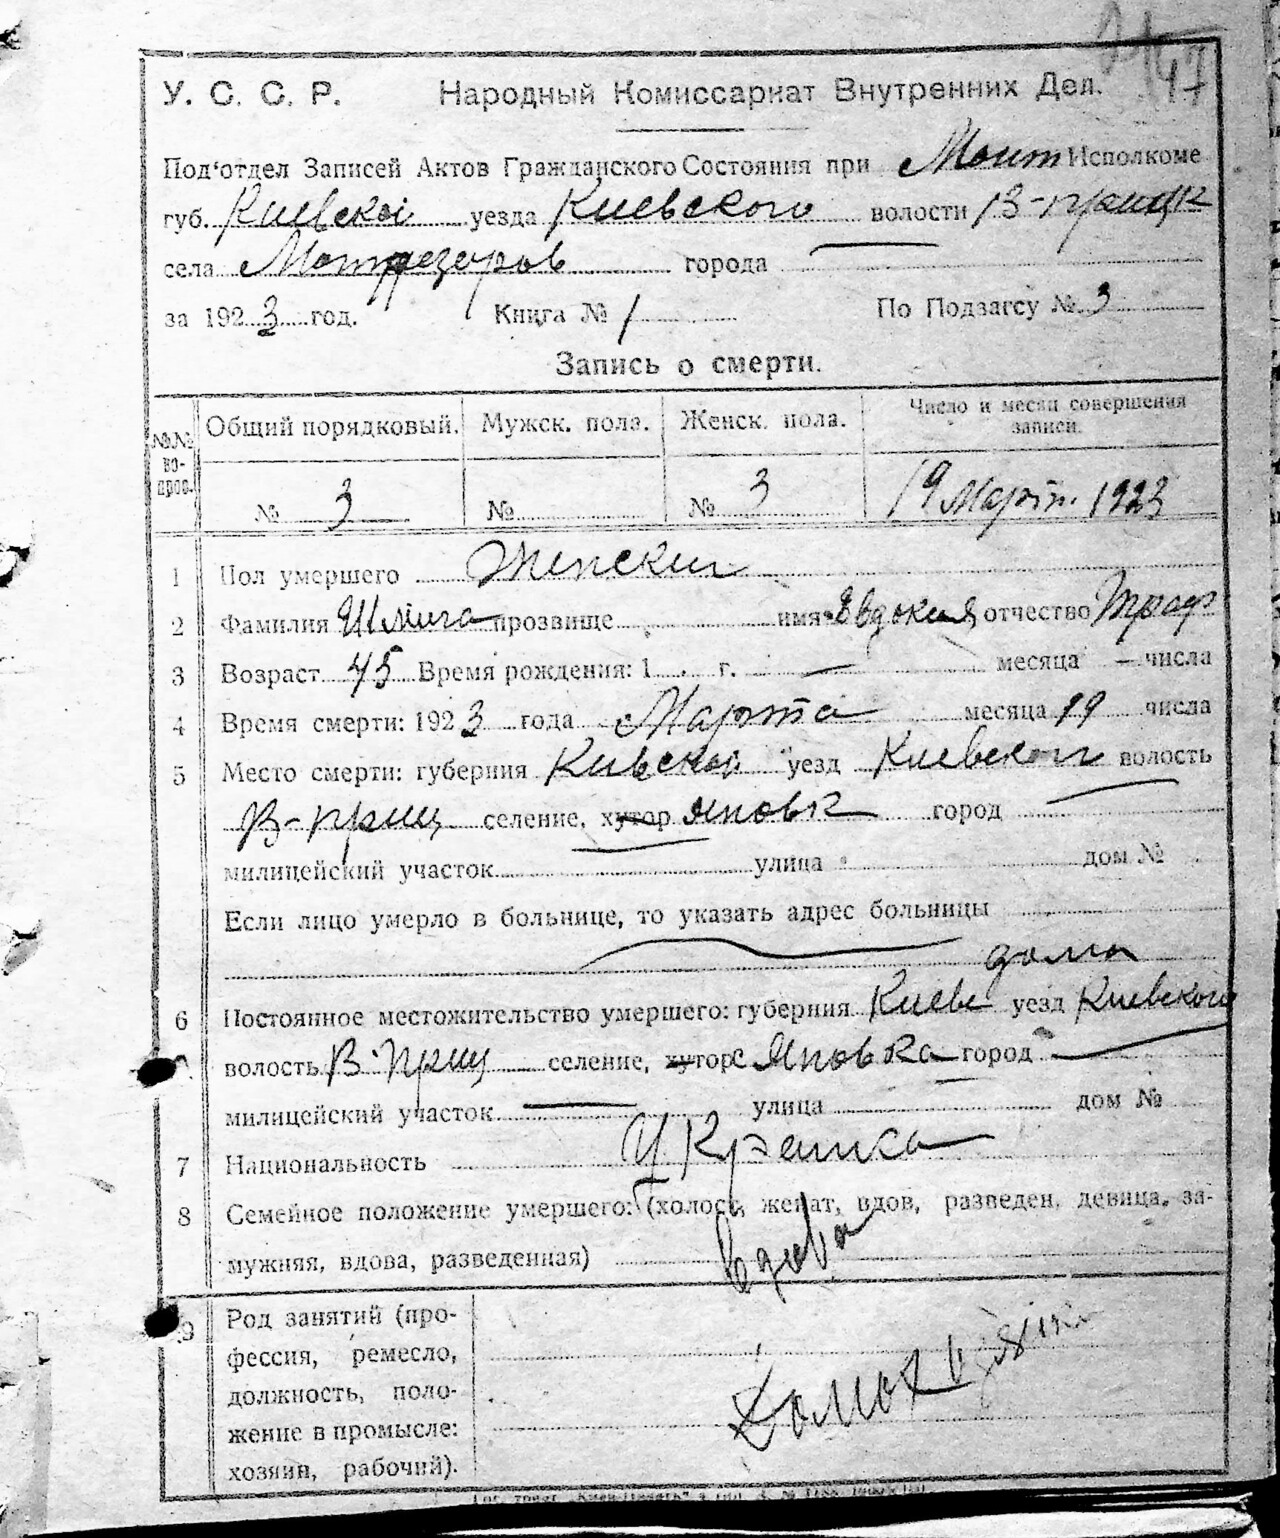 47
У. С. С. Р. Народный Комиссариат Внутренних Дел.
Под'отдел Записей Актов Гражданского Состояния при Исполкоме
губ. Киевской уезда Киевского волости
села города
за 1923 год. Книга № 1 По Подзагсу № 3
Запись о смерти.
№№ во- прос. Общий порядковый. Мужск. пола. Женск. пола. Число и месяц совершения записи.
№ 3 № № 3 19 Март. 1923
1 Пол умершего Женский
2 Фамилия Шмига прозвище имя Евдокия отчество Троф
3 Возраст 45 Время рождения: 1 г. — месяца — числа
4 Время смерти: 1923 года Марта месяца 19 числа
5 Место смерти: губерния Кивской уезд Киевского волость
В-приц селение, хутор Яновк город —
милицейский участок улица дом №
Если лицо умерло в больнице, то указать адрес больницы
дома
6 Постоянное местожительство умершего: губерния Киев уезд Киевского
волость В-Приц селение, хутор с Яновка город —
милицейский участок — улица дом №
7 Национальность Украинка
8 Семейное положение умершего: (холост, женат, вдов, разведен, девица, за-
мужняя, вдова, разведенная) вдова
9 Род занятий (про-
фессия, ремесло,
должность, поло-
жение в промысле:
хозяин, рабочий).